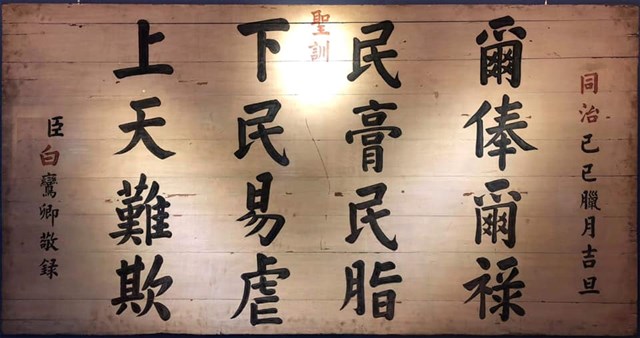 聖訓
同治己巳臘月吉旦
爾俸爾祿
民膏民脂
下民易虐
上天難欺
臣白鸞卿敬録